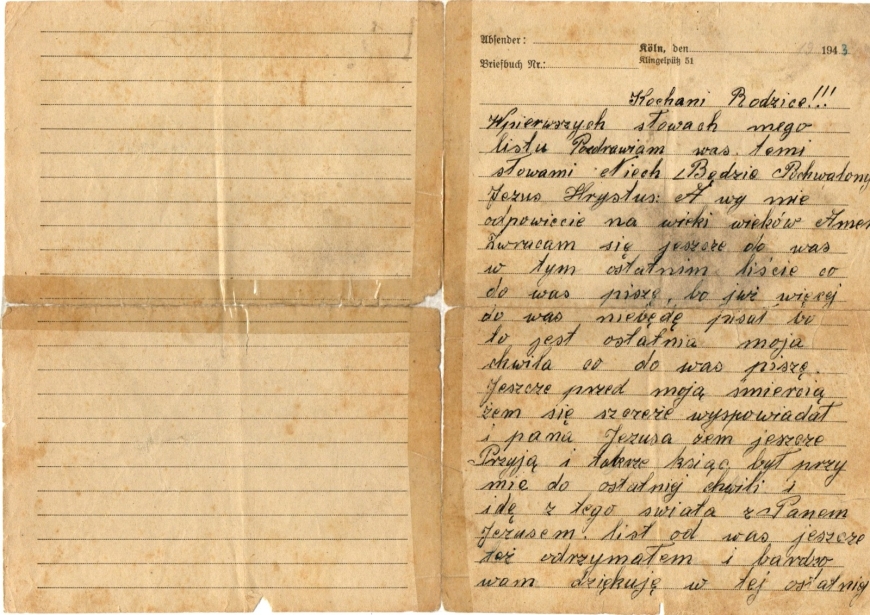 Absender:
Köln, den 194 3
Briefbuch Nr.:
Klingelpütz 51
Kochani Rodzice!!!
Wpierwszych słowach mego
listu Pozdrawiam was temi
słowami Niech Będzie Pochwalony
Jezus Hrystus: A wy mie
odpowiecie na wieki wieków Amen
Zwracam się jeszcze do was
w tym ostatnim liście co
do was piszę, bo już więcej
do was niebędę pisał bo
to jest ostatnia moja
chwila co do was piszę.
Jeszcze przed moją śmiercią
żem się szczeże wyspowiadał
i pana Jezusa żem jeszcze
Przyją i także ksiąc był przy
mie do ostatniej chwili i
idę z tego swiata z Panem
Jezusem. list od was jeszcze
też odrzymałem i bardzo
wam dziękuję w tej ostatniej